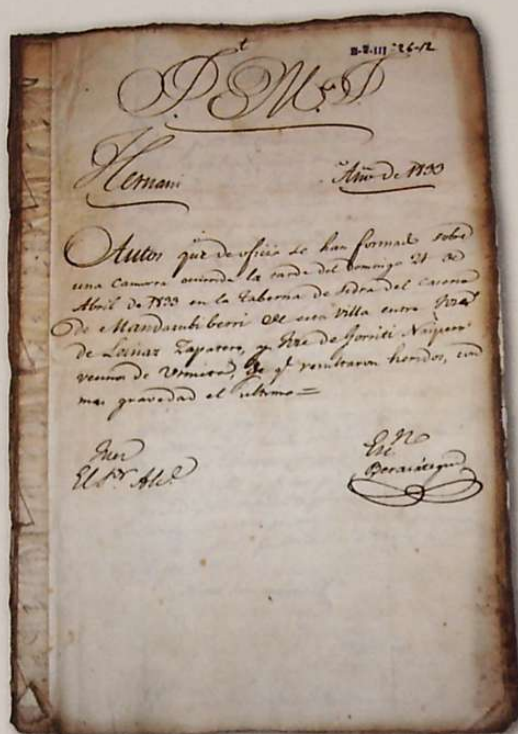 B-7-III 26-12
Hernani Año de 1833
Autos que de oficio se han formado sobre
una camorra ocurrida la tarde del Domingo 21 de
Abril de 1833 en la Taberna de Sidra del Caserio
de Mandazubiberri de esta Villa entre José
de Loinaz Zapatero, y José de Gorriti
vecinos de Urnieta, de qe resultaron heridos, con
mas gravedad el ultimo =
Juez
El Sr Alce
Esno